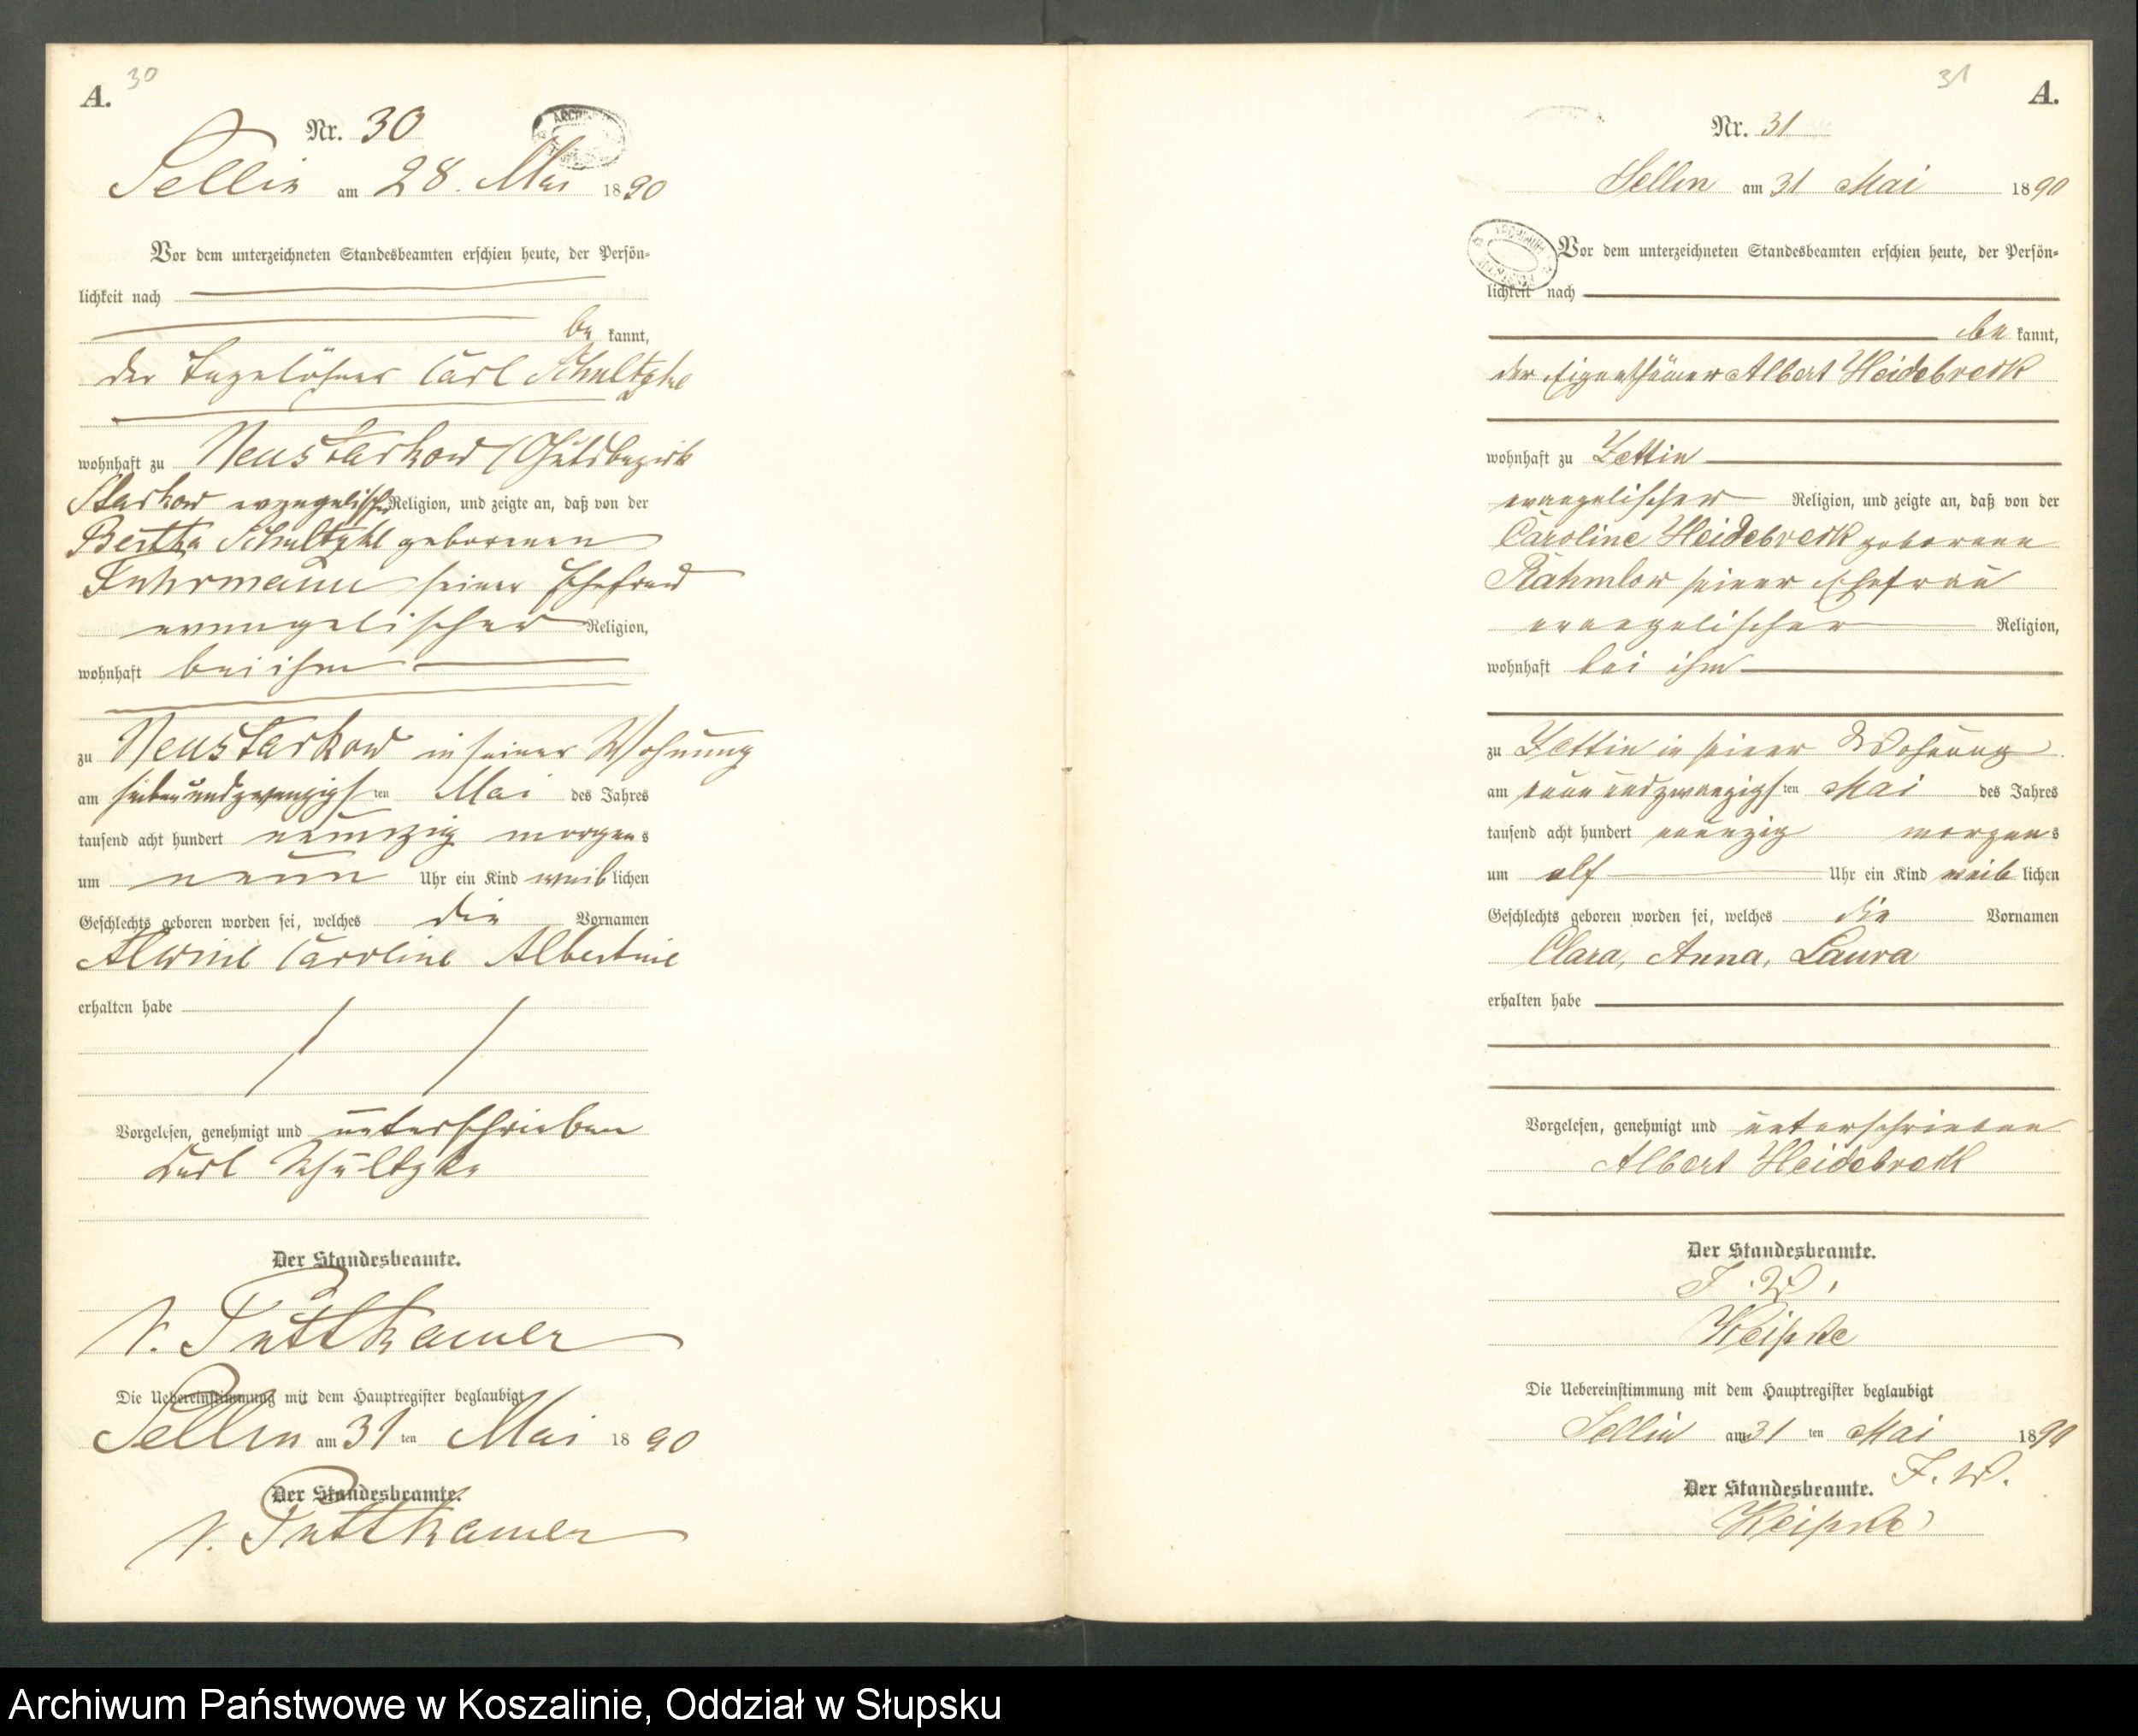 30
A.
Nr. 30
Sellin am 28. Mai 1890
Vor dem unterzeichneten Standesbeamten erschien heute, der Persön-
lichkeit nach
be kannt,
der Tagelöhner Carl Schultzke
wohnhaft zu Neustarkow (Gutsbezirk
Starkow evangelischer Religion, und zeigte an, daß von der
Bertha Schultzke geborenen
Fuhrmann seiner Ehefrau
evangelischer Religion,
wohnhaft bei ihm
zu Neustarkow in seiner Wohnung
am siebenundzwanzigsten Mai des Jahres
tausend acht hundert neunzig morgens
um neun Uhr ein Kind weiblichen
Geschlechts geboren worden sei, welches die Vornamen
Alwine Caroline Albertine
erhalten habe
Vorgelesen, genehmigt und unterschrieben
Carl Schultzke
Der Standesbeamte.
v. Puttkamer
Die Uebereinstimmung mit dem Hauptregister beglaubigt
Sellin am 31 ten Mai 1890
Der Standesbeamte.
v. Puttkamer
31
A.
Nr. 31
Sellin am 31 Mai 1890
Vor dem unterzeichneten Standesbeamten erschien heute, der Persön-
lichkeit nach
be kannt,
der Eigenthümer Albert Heidebreck
wohnhaft zu Zettin
evangelischer Religion, und zeigte an, daß von der
Caroline Heidebreck geborene
Rahmlow seiner Ehefrau
evangelischer Religion,
wohnhaft bei ihm
zu Zettin in seiner Wohnung
am neun und zwanzigsten Mai des Jahres
tausend acht hundert neunzig morgens
um elf Uhr ein Kind weiblichen
Geschlechts geboren worden sei, welches die Vornamen
Clara, Anna, Laura
erhalten habe
Vorgelesen, genehmigt und unterschrieben
Albert Heidebreck
Der Standesbeamte.
Die Uebereinstimmung mit dem Hauptregister beglaubigt
Sellin am 31 ten Mai 1890
Der Standesbeamte.
Archiwum Państwowe w Koszalinie, Oddział w Słupsku